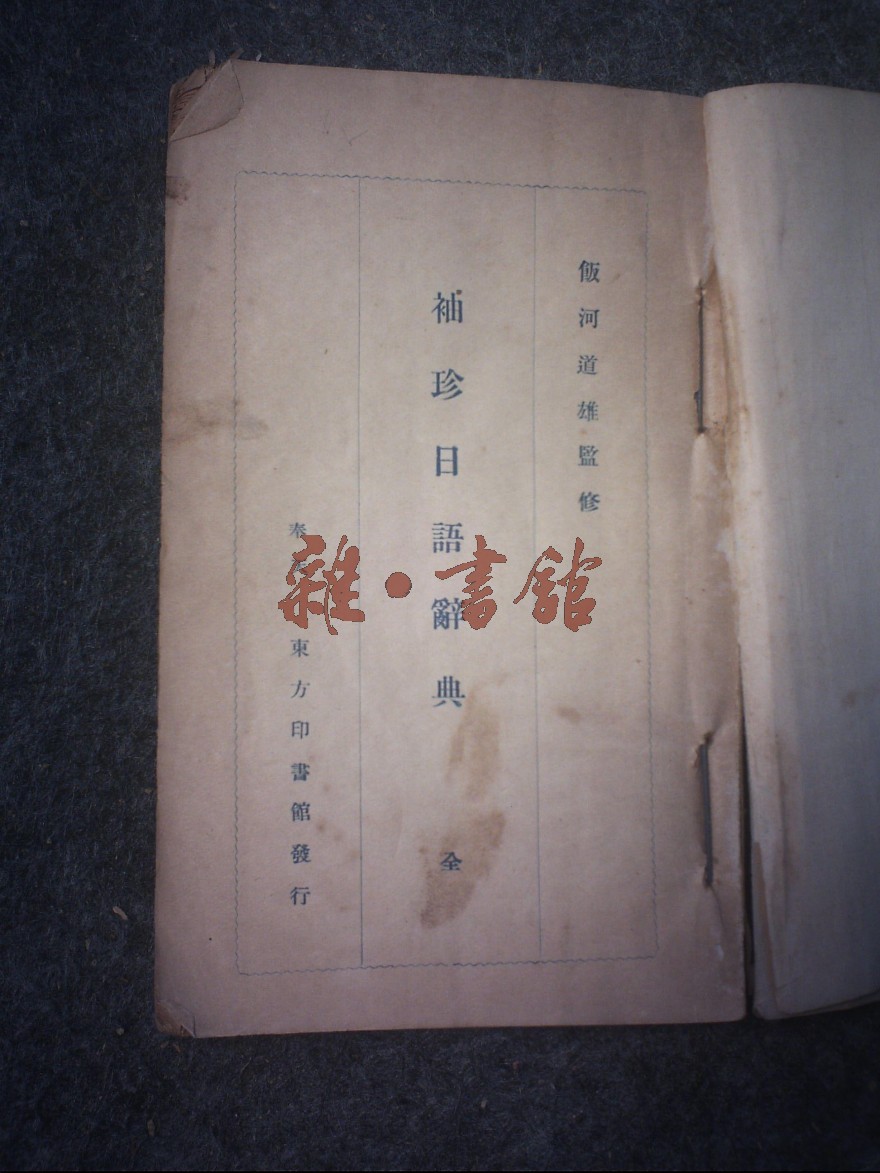 飯河道雄監修
袖珍日語辭典 全
奉 東方印書館發行
雜·書館